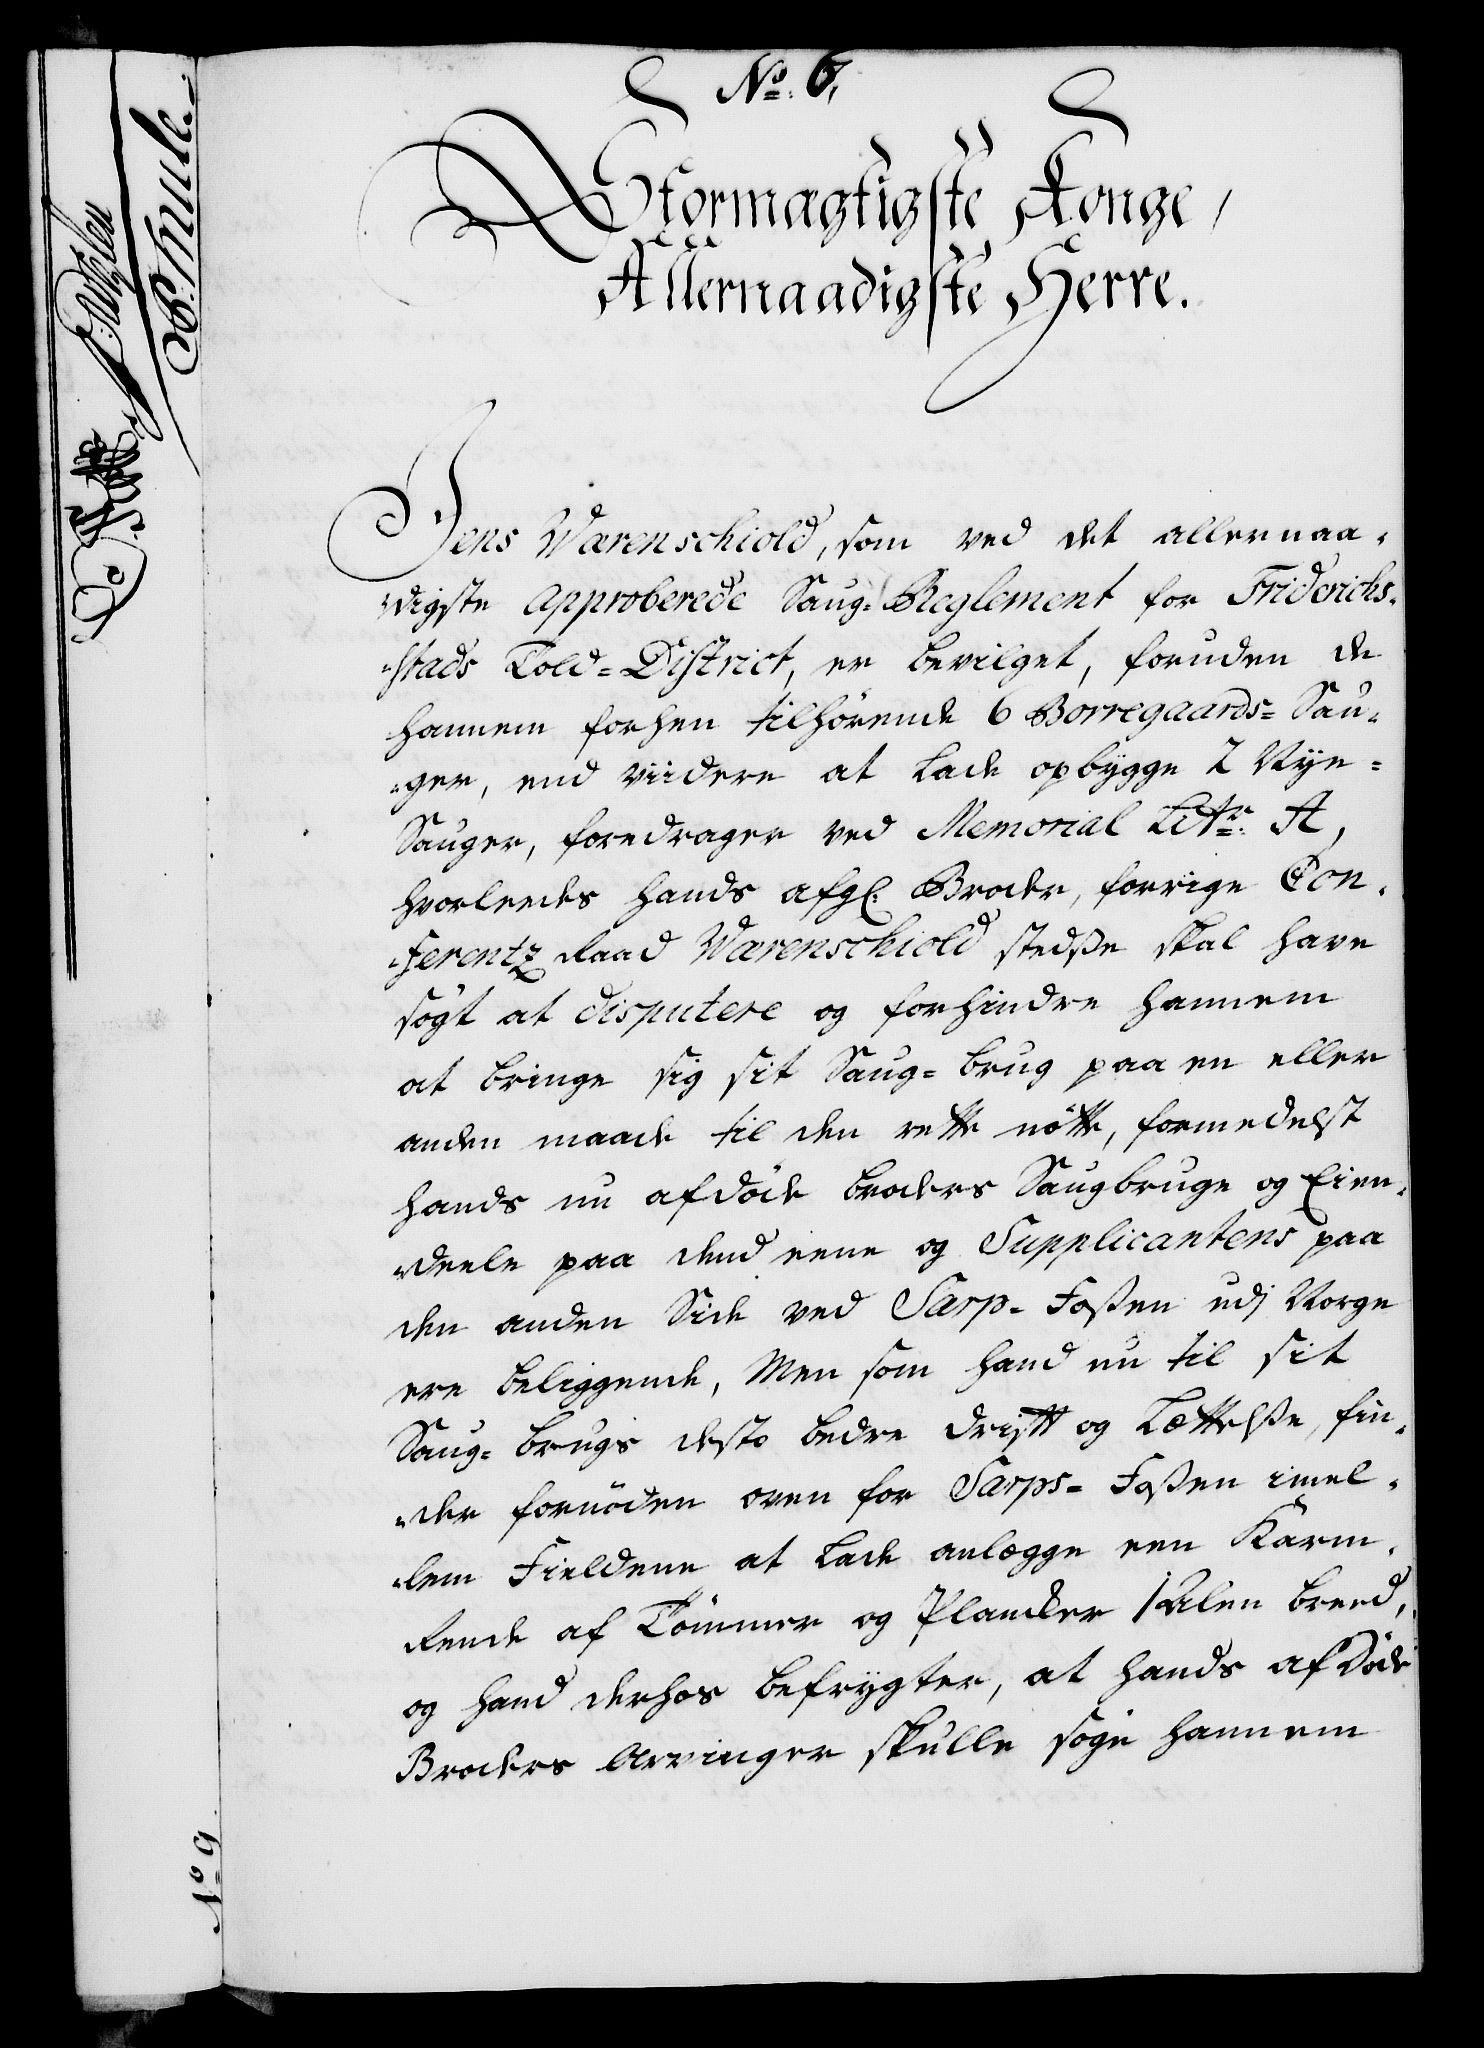 No: 6,
Stormægtigste Konge,
Allernaadigste Herre.
Jens Wærenschiold, som ved det allernaa-
-digste Approberede Saug-Reglement for Friderichs-
-stads Told-District, er bevilget, foruden de
hannem forhen tilhørende 6 Borregaards-Sau-
-ger, end viidere at lade opbygge 2 Nye-
Sauger, foredrager ved Memorial Litr: A,
hvorledes hands afgl. Broder, forrige Con-
-ferentz Raad Wærenschiold stedsse skal have
søgt at disputere og forhindre hannem
at bringe sig sit Saug-brug paa en eller
anden maade til den rette nötte, formedelst
hands nu afdöde broders Saugbruge og Eien-
-deele paa dend eene og Supplicantens paa
den anden Side ved Sarp-Fossen udj Norge
ere beliggende, Men som hand nu til sit
Saug-brugs desto bedre drift og Lættelsse, fin-
-der fornöden oven for Sarps-Fossen imel-
-lem Fieldene at lade anlægge een Karm-
Rende af Tömmer og Plancker 1 Alen breed,
og hand derhos befrygter, at hands afDöde
Broders Arvinger skulle søge hannem
No 9